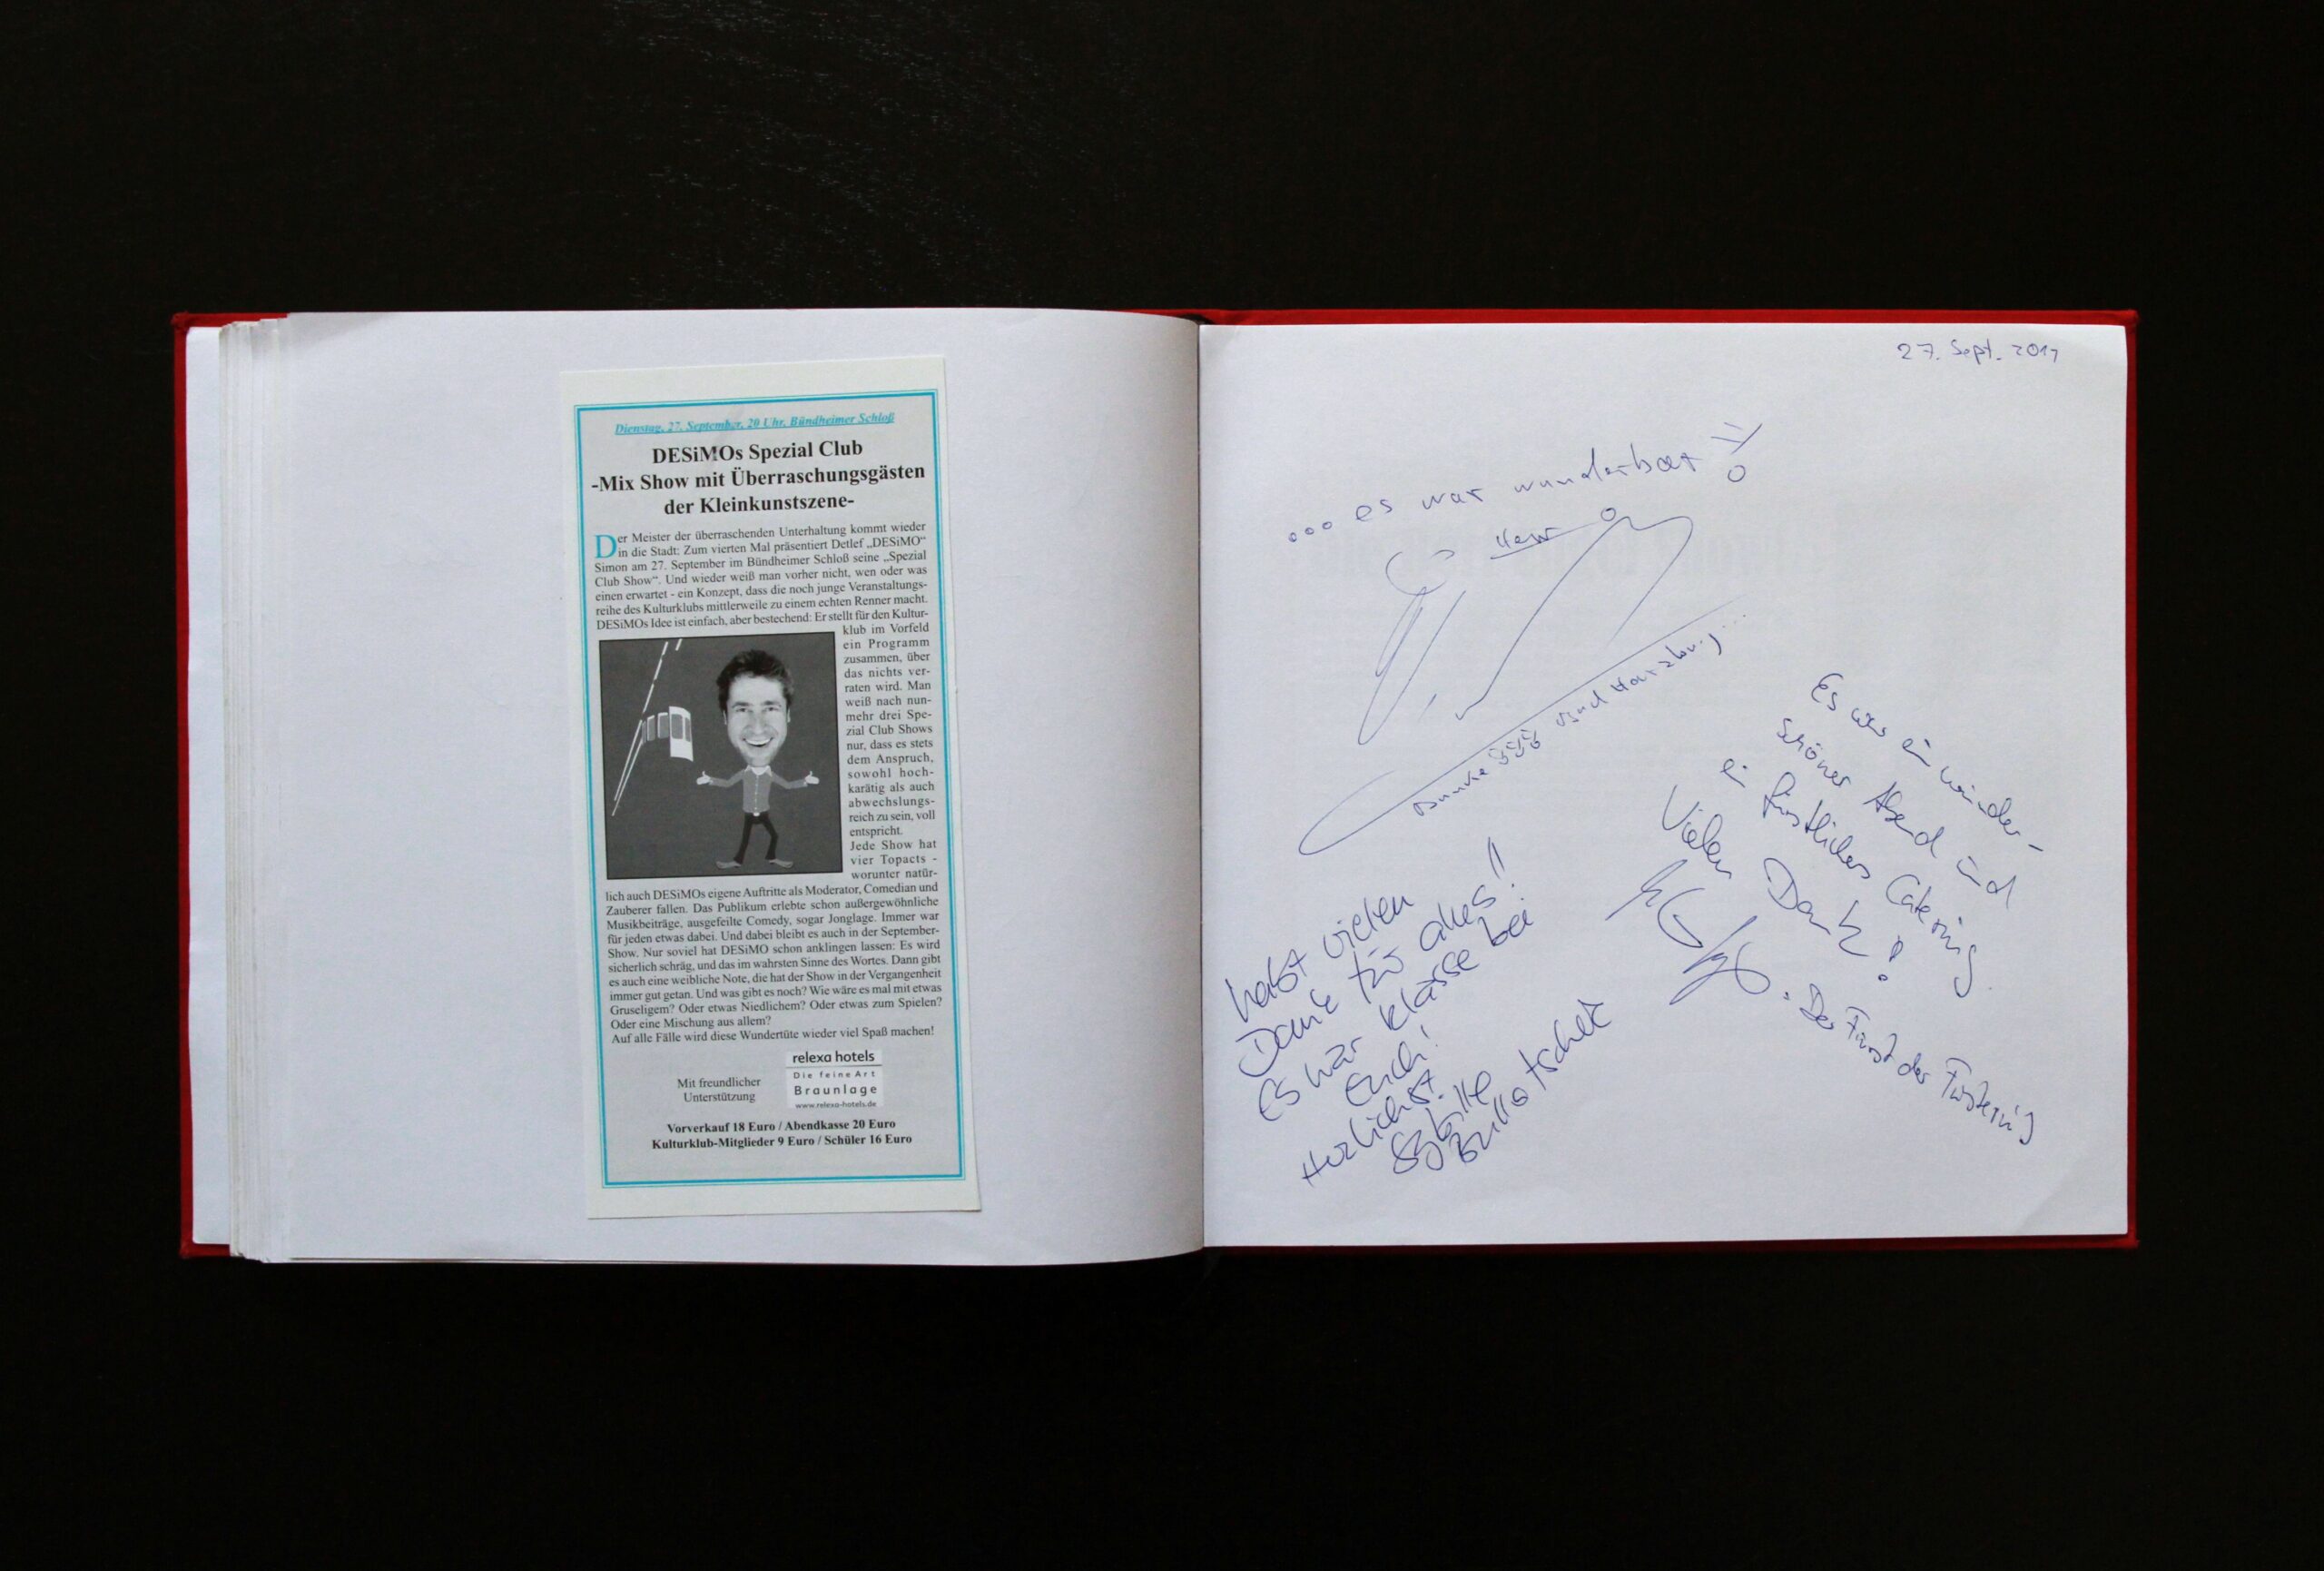 Dienstag, 27. September, 20 Uhr, Bündheimer Schloß
DESiMOs Spezial Club
-Mix Show mit Überraschungsgästen
der Kleinkunstszene-
Der Meister der überraschenden Unterhaltung kommt wieder
in die Stadt: Zum vierten Mal präsentiert Detlef „DESiMO“
Simon am 27. September im Bündheimer Schloß seine „Spezial
Club Show“. Und wieder weiß man vorher nicht, wen oder was
einen erwartet - ein Konzept, dass die noch junge Veranstaltungs-
reihe des Kulturklubs mittlerweile zu einem echten Renner macht.
DESiMOs Idee ist einfach, aber bestechend: Er stellt für den Kultur-
klub im Vorfeld
ein Programm
zusammen, über
das nichts ver-
raten wird. Man
weiß nach nun-
mehr drei Spe-
zial Club Shows
nur, dass es stets
dem Anspruch,
sowohl hoch-
karätig als auch
abwechslungs-
reich zu sein, voll
entspricht.
Jede Show hat
vier Topacts -
worunter natür-
lich auch DESiMOs eigene Auftritte als Moderator, Comedian und
Zauberer fallen. Das Publikum erlebte schon außergewöhnliche
Musikbeiträge, ausgefeilte Comedy, sogar Jonglage. Immer war
für jeden etwas dabei. Und dabei bleibt es auch in der September-
Show. Nur soviel hat DESiMO schon anklingen lassen: Es wird
sicherlich schräg, und das im wahrsten Sinne des Wortes. Dann gibt
es auch eine weibliche Note, die hat der Show in der Vergangenheit
immer gut getan. Und was gibt es noch? Wie wäre es mal mit etwas
Gruseligem? Oder etwas Niedlichem? Oder etwas zum Spielen?
Oder eine Mischung aus allem?
Auf alle Fälle wird diese Wundertüte wieder viel Spaß machen!
Mit freundlicher
Unterstützung
relexa hotels
Die feine Art
Braunlage
www.relexa-hotels.de
Vorverkauf 18 Euro / Abendkasse 20 Euro
Kulturklub-Mitglieder 9 Euro / Schüler 16 Euro
27. Sept. 2011
... es war wunderbar !!
Herr
Danke Bad Harzburg...
Es war ein wunder-
schöner Abend und
ein fürstliches Catering.
Vielen Dank!
Der Fürst der
habt vielen
Dank für alles!!
Es war klasse bei
Euch!
Herzlichst.
Sybille
Bullatschek